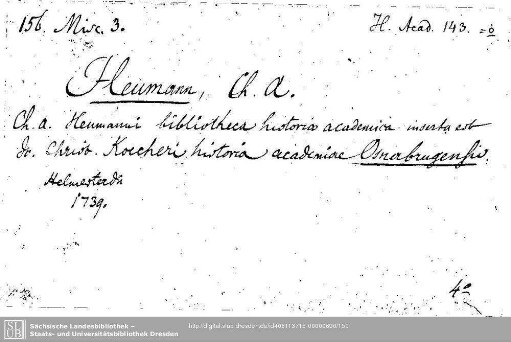 156. Misc. 3.
H. Acad. 143.
Heumann, Ch. A.
Ch. A. Heumanni bibliotheca historia academica inserta est
Jo. Christ. Koecheri historia academiae Osnabrugensis.
Helmestadii
1739.
4°
Sächsische Landesbibliothek –
Staats- und Universitätsbibliothek Dresden